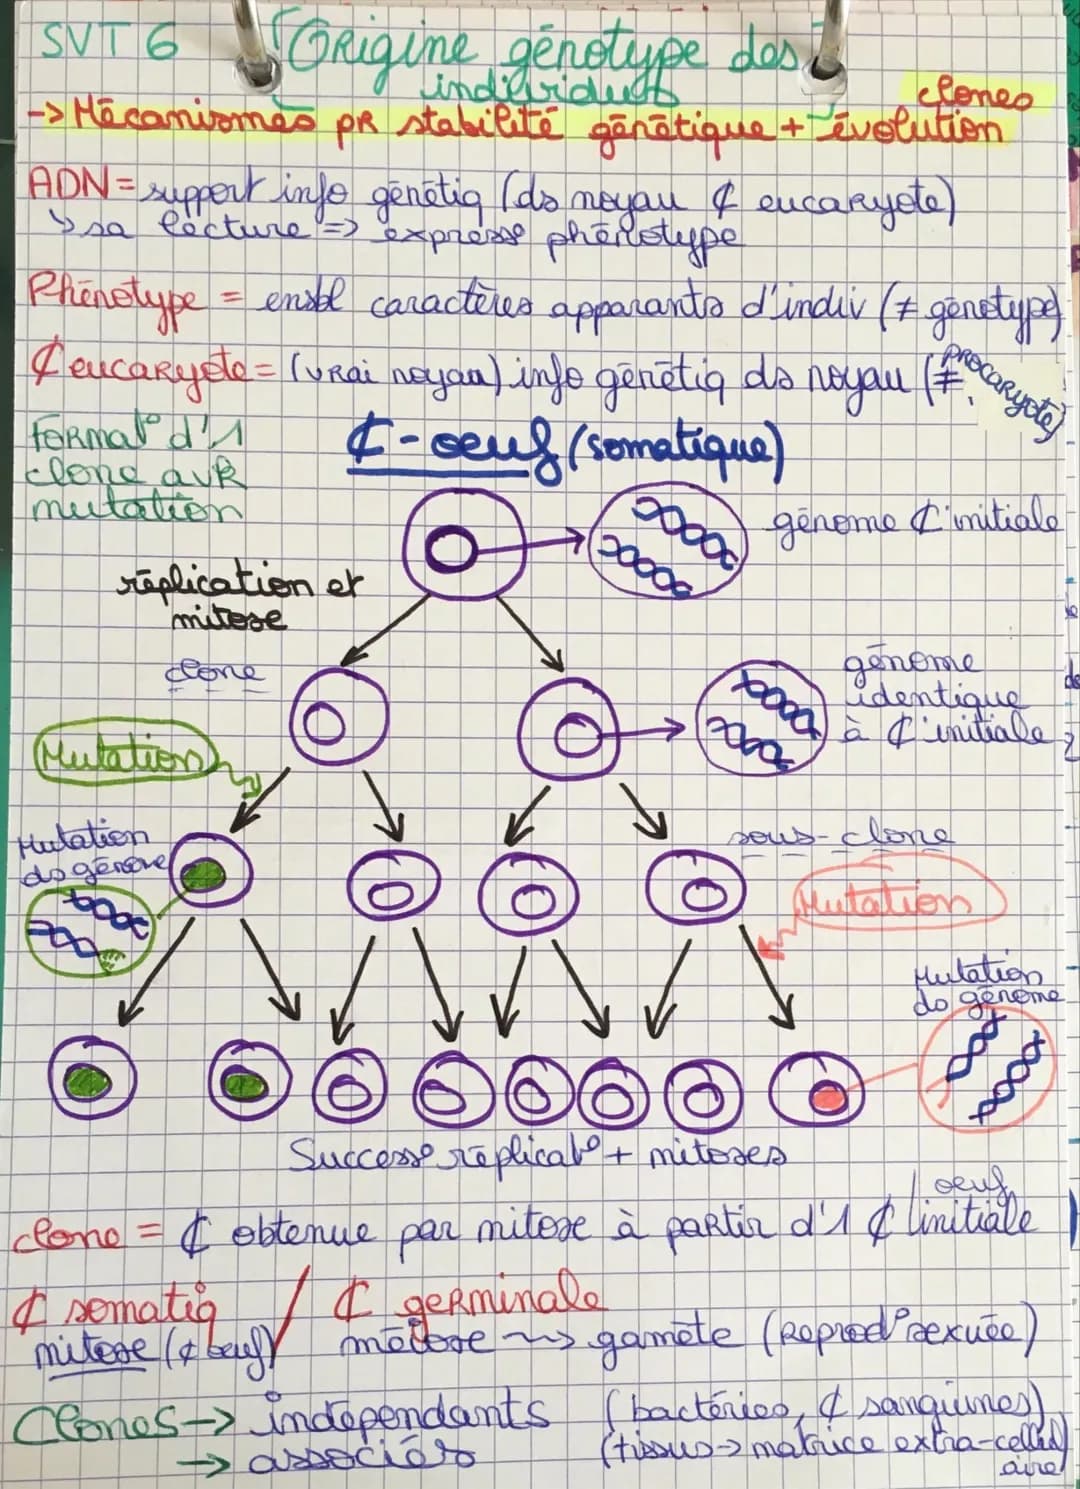 SVT 6 Origine génotype des
individus
clones
-> Mécanismes pR stabilité génétique + évolution
ADN = support info génétiq (ds noyau ₵ eucaryote)
↳ sa lecture => expresse phénotype
Phénotype = ensbl caractères apparants d'indiv (≠ génotype)
₵ eucaryote = (vrai noyau) info génétiq ds noyau (≠ procaryote)
Format° d'1
clone avk
mutation
₵-oeuf (somatique)
génome ₵ initiale
réplication et
mitose
clone
génome
identique
à ₵ initiale
Mutation
Mutation
ds génome
sous-clone
Mutation
Mutation
ds génome
Successe réplicat° + mitoses
clone = ₵ obtenue par mitose à partir d'1 ₵ initiale
oeuf
₵ somatiq / ₵ germinale
mitose (₵ oeuf) méiose ~> gamète (Reprod° sexuée)
Clones -> indépendants (bactéries, ₵ sanguines)
-> associés (tissus -> matrice extra-cellul
aire)